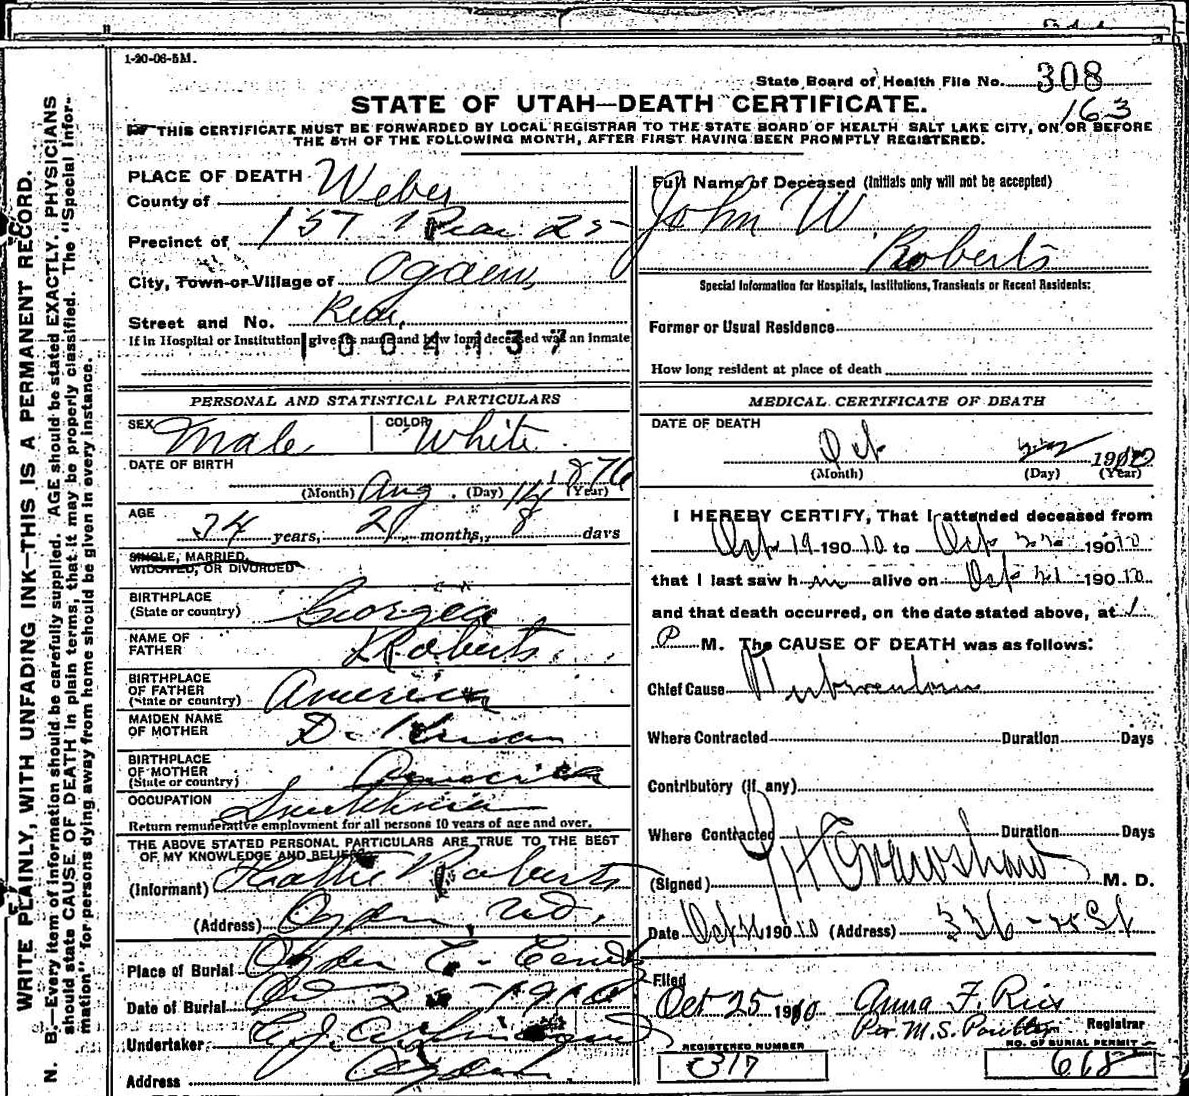 1-20-06-5M.
State Board of Health File No. 308
STATE OF UTAH—DEATH CERTIFICATE.
163
THIS CERTIFICATE MUST BE FORWARDED BY LOCAL REGISTRAR TO THE STATE BOARD OF HEALTH SALT LAKE CITY, ON OR BEFORE
THE 5TH OF THE FOLLOWING MONTH, AFTER FIRST HAVING BEEN PROMPTLY REGISTERED.
WRITE PLAINLY, WITH UNFADING INK—THIS IS A PERMANENT RECORD.
N. B.—Every item of information should be carefully supplied. AGE should be stated EXACTLY. PHYSICIANS
should state CAUSE OF DEATH in plain terms, that it may be properly classified. The "Special Infor-
mation" for persons dying away from home should be given in every instance.
PLACE OF DEATH
County of Weber
Precinct of 157 Rear 25
City, Town or Village of Ogden,
Street and No. Rear
If in Hospital or Institution give its name and how long deceased was an inmate
1004137
PERSONAL AND STATISTICAL PARTICULARS
SEX Male COLOR White
DATE OF BIRTH 1876
(Month) Aug. (Day) 14 (Year)
AGE
34 years, 2 months, 8 days
SINGLE, MARRIED,
WIDOWED, OR DIVORCED
BIRTHPLACE
(State or country) Georgea
NAME OF
FATHER Roberts.
BIRTHPLACE
OF FATHER
(State or country) America
MAIDEN NAME
OF MOTHER D.
BIRTHPLACE
OF MOTHER
(State or country) America
OCCUPATION
Return remunerative employment for all persons 10 years of age and over.
THE ABOVE STATED PERSONAL PARTICULARS ARE TRUE TO THE BEST
OF MY KNOWLEDGE AND BELIEF
(Informant) Kattie Roberts
(Address) Ogden, Ut.
Place of Burial Ogden C. Cem
Date of Burial Oct 25 - 1910
Undertaker
Address Ogden
Full Name of Deceased (Initials only will not be accepted)
John W.
Roberts
Special Information for Hospitals, Institutions, Transients or Recent Residents:
Former or Usual Residence
How long resident at place of death
MEDICAL CERTIFICATE OF DEATH
DATE OF DEATH
Oct 22 1910
(Month) (Day) (Year)
I HEREBY CERTIFY, That I attended deceased from
Oct 19 190 10 to Oct 22 190 10
that I last saw h im alive on Oct 21 190 10
and that death occurred, on the date stated above, at 1
P M. The CAUSE OF DEATH was as follows:
Chief Cause
Where Contracted Duration Days
Contributory (if any)
Where Contracted Duration Days
(Signed) M. D.
Date Oct 190 10 (Address) 336 - 25 St
Filed
Oct 25 1910 Anna F. Ries
Per M.S. Registrar
REGISTERED NUMBER
317
NO. OF BURIAL PERMIT
668